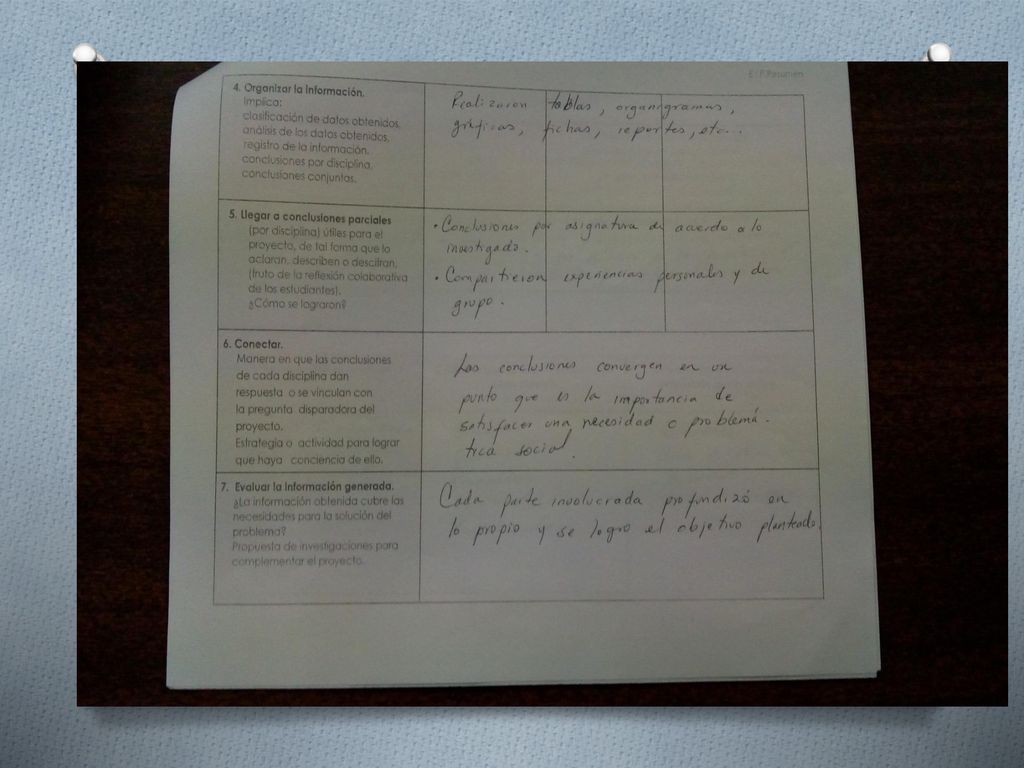 E.I.P.Resumen
4. Organizar la información.
Implica:
clasificación de datos obtenidos,
análisis de los datos obtenidos,
registro de la información,
conclusiones por disciplina,
conclusiones conjuntas.
Realizaron tablas, organigramas,
gráficas, fichas, reportes, etc...
5. Llegar a conclusiones parciales
(por disciplina) útiles para el
proyecto, de tal forma que lo
aclaran, describen o descifran,
(fruto de la reflexión colaborativa
de los estudiantes).
¿Cómo se lograron?
• Conclusiones por asignatura de acuerdo a lo
investigado.
• Compartieron experiencias personales y de
grupo.
6. Conectar.
Manera en que las conclusiones
de cada disciplina dan
respuesta o se vinculan con
la pregunta disparadora del
proyecto.
Estrategia o actividad para lograr
que haya conciencia de ello.
Las conclusiones convergen en un
punto que es la importancia de
satisfacer una necesidad o problemá-
tica social.
7. Evaluar la información generada.
¿La información obtenida cubre las
necesidades para la solución del
problema?
Propuesta de investigaciones para
complementar el proyecto.
Cada parte involucrada profundizó en
lo propio y se logro el objetivo planteado.